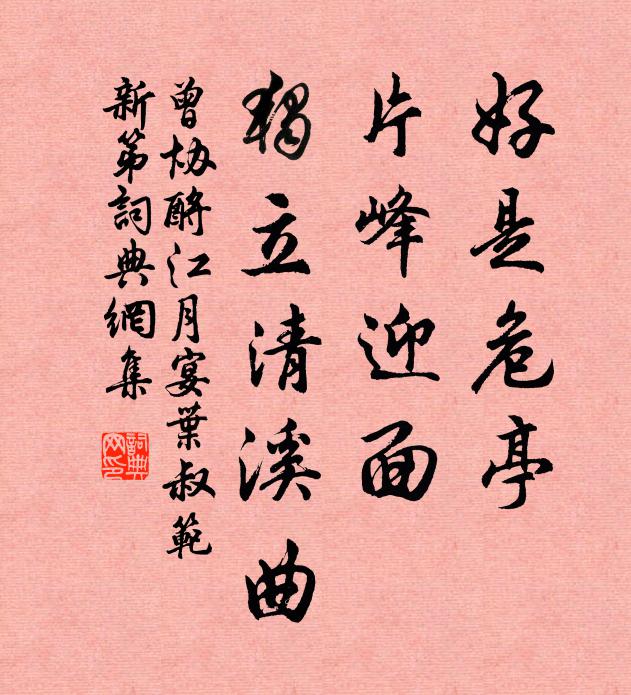 好是危亭
片峰迎面
獨立清溪曲
曾協酹江月宴葉叔範
新第詞典網集
詞典
网印